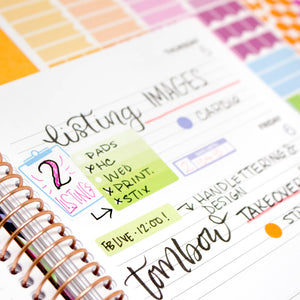 THURSDAY
listing IMAGES
5
PADS
X HC
WED
X PRINT.
X STIX
2
CARDIO
FRIDAY
6
HANDLETTERING &
DESIGN
FB LIVE - 12:00!
tombow TAKEOVER